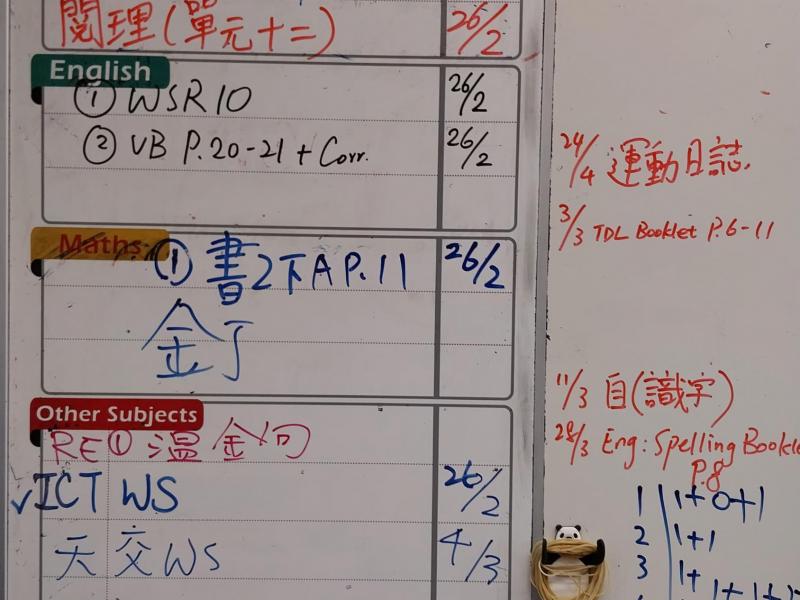 閱理(單元十二) 26/2
English
① WSR10 26/2
② VB P.20-21 + Corr. 26/2
Maths
① 書2下A P.11 26/2
Other Subjects
RE ① 溫金句
ICT WS 26/2
天交 WS 4/3
24/4 運動日誌
3/3 TDL Booklet P.6-11
11/3 自(識字)
28/3 Eng: Spelling Booklet
P.8
1 1+0+1
2 1+1
3 1+